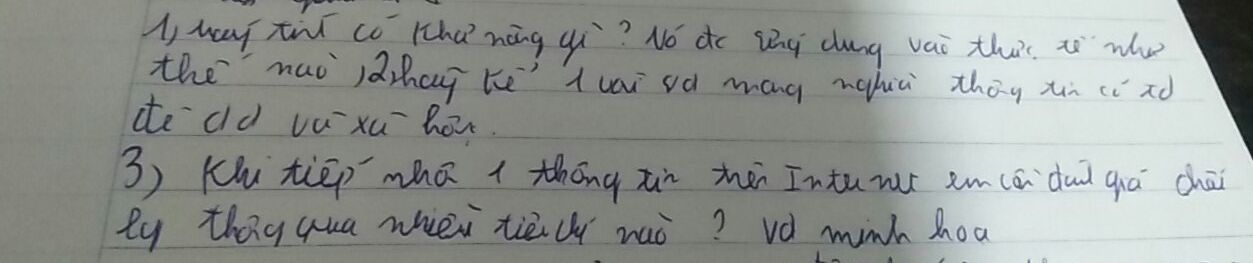 1, máy tính có khả năng gì? Nó đc ứng dụng vào thực tế như
thế nào, 2, hãy kể 1 vài vd mang nghĩa thông tin có
đến và xã hội.
3) Khi tiếp nhận 1 thông tin trên Internet em cần đánh giá chất
lg thông qua những tiêu chí nào? vd minh hoạ